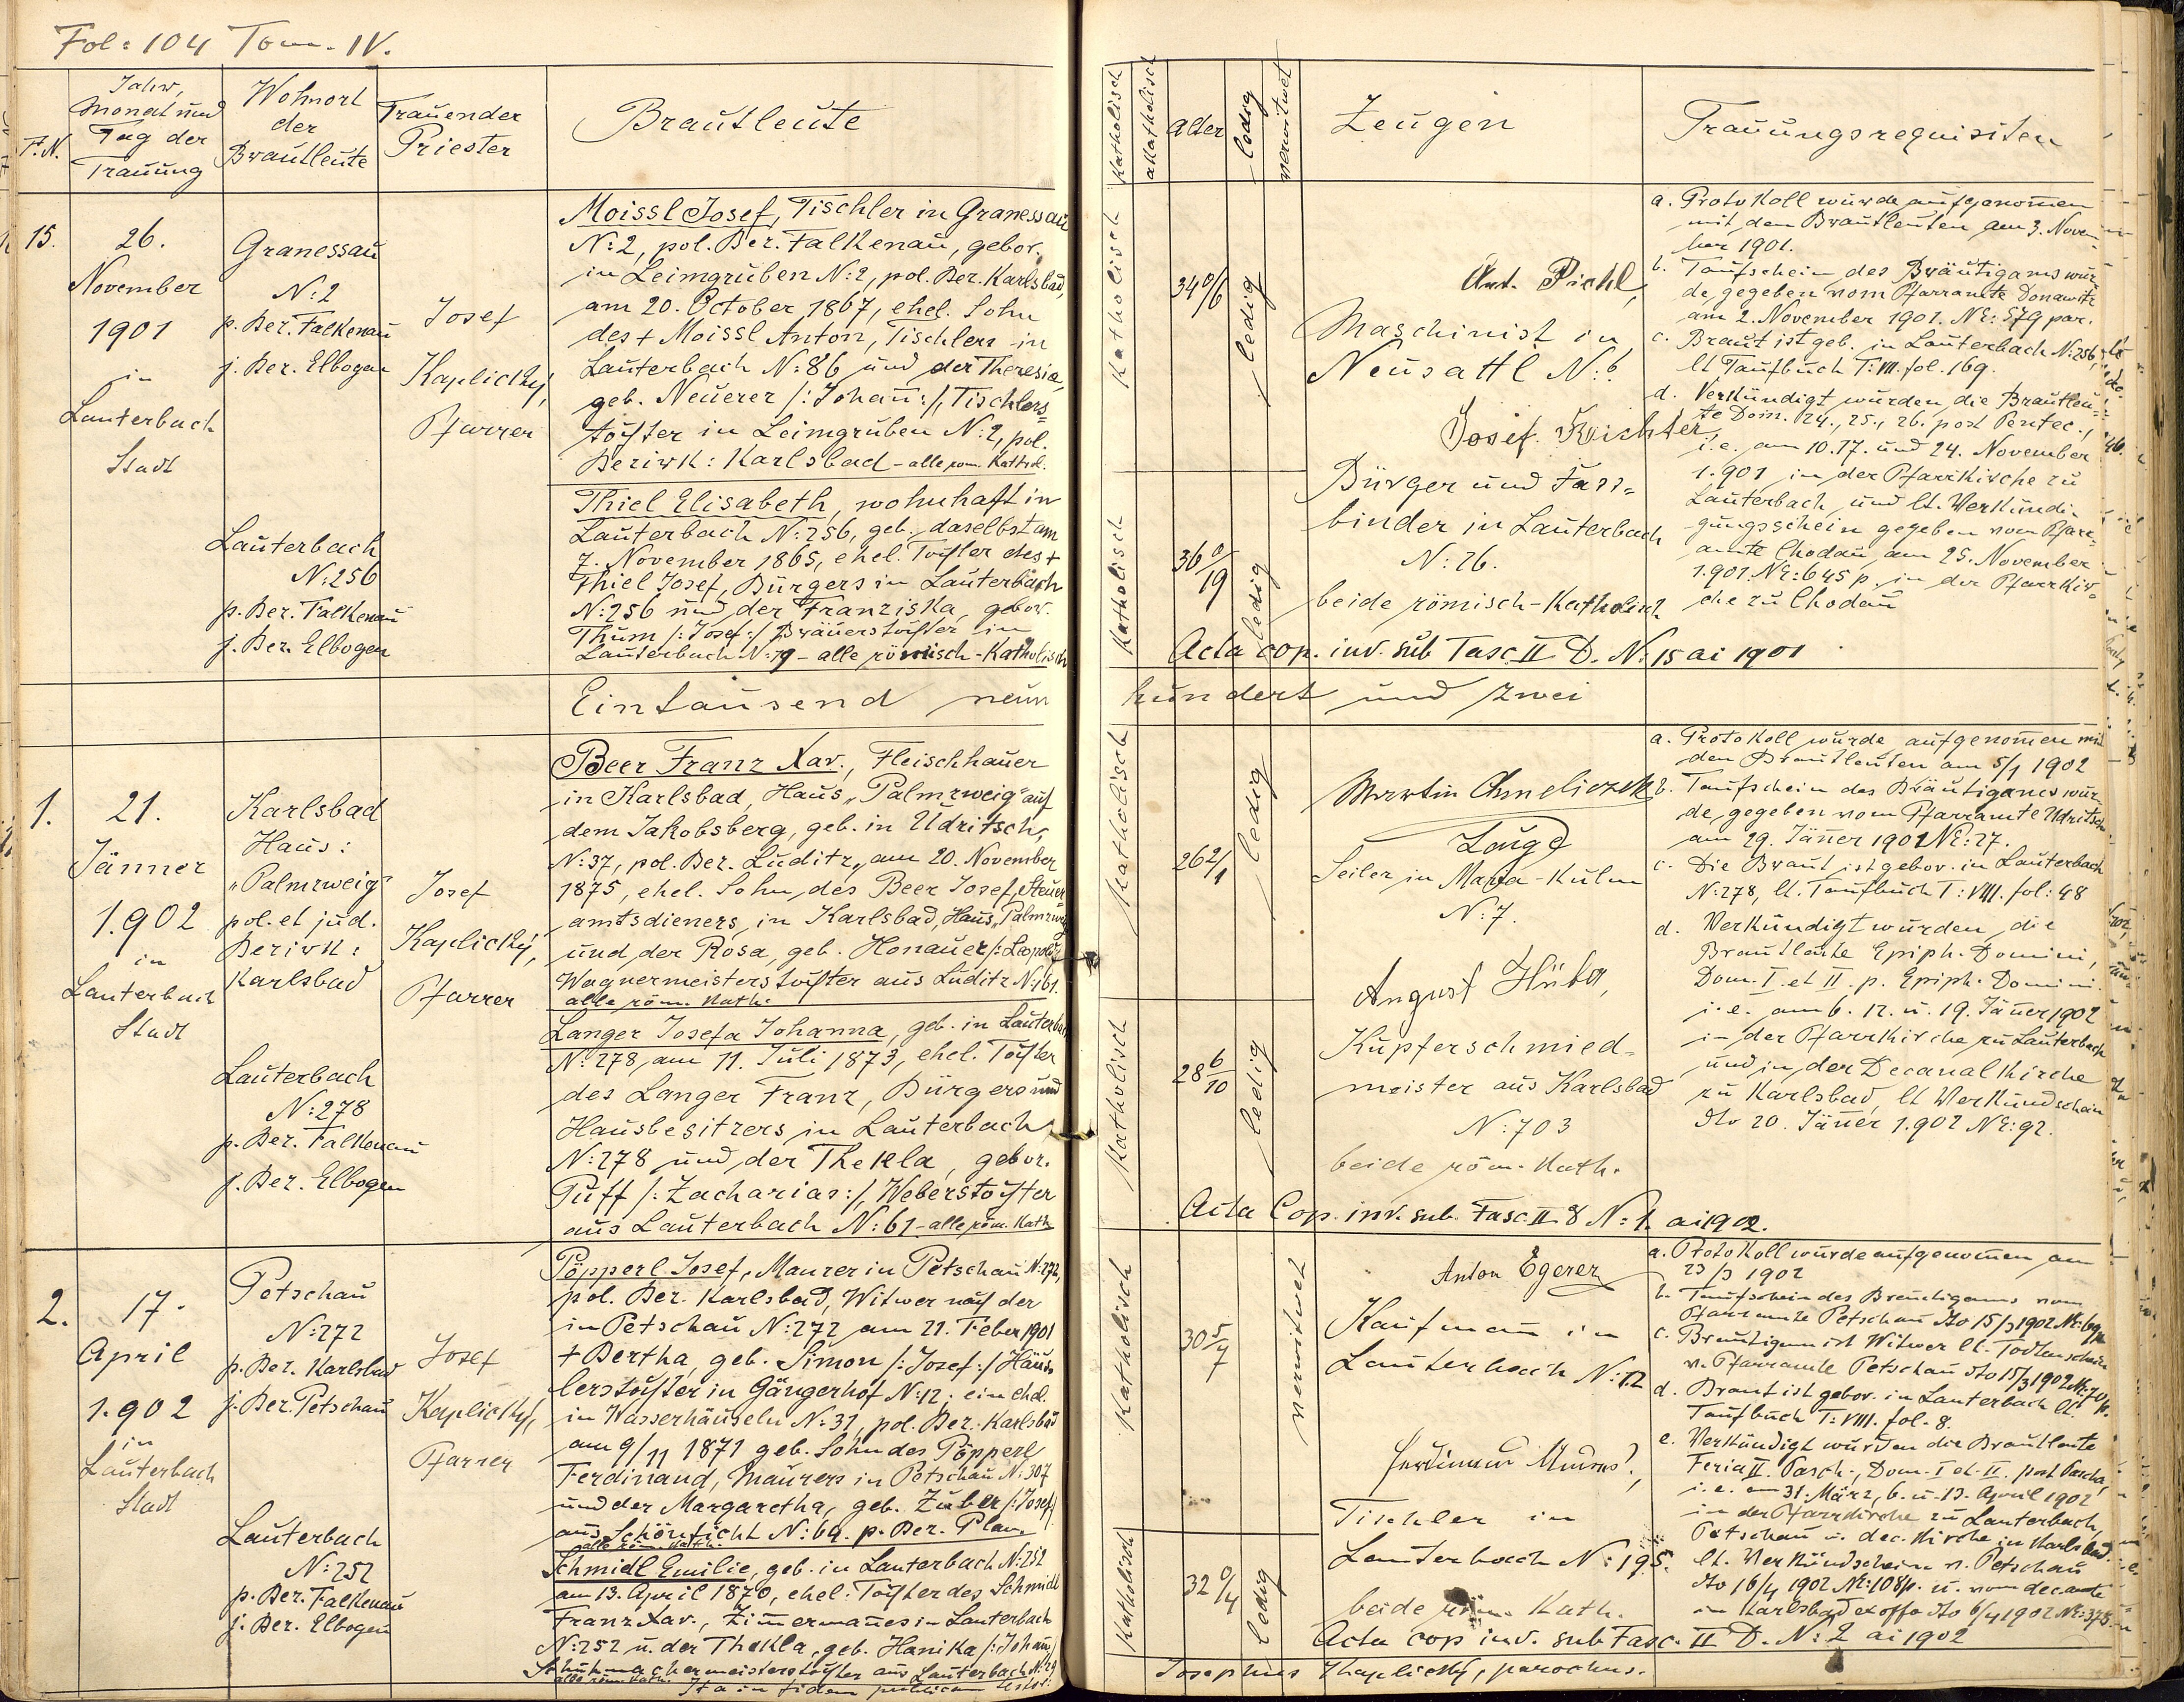 Fol: 104 Tom. IV.
F.N.
Jahr,
Monat und
Tag der
Trauung
Wohnort
der
Brautleute
Trauender
Priester
Brautleute
Katholisch
akatholisch
Alter
ledig
verwitwet
Zeugen
Trauungsrequisiten
15.
26.
November
1901
in
Lauterbach
Stadt
Granessau
N: 2
p. Bez. Falkenau
j. Bez. Elbogen
Josef
Kaplický,
Pfarrer
Moissl Josef, Tischler in Granessau
N: 2, pol. Bez. Falkenau, gebor.
in Leimgruben N: 2, pol. Bez. Karlsbad,
am 20. October 1867, ehel. Sohn
des + Moissl Anton, Tischlers in
Lauterbach N: 86 und der Theresia,
geb. Neuerer /: Johan̄ :/, Tischlers=
tochter in Leimgruben N: 2, pol.
Bezirk: Karlsbad - alle röm. kathol.
Lauterbach
N: 256
p. Bez. Falkenau
j. Bez. Elbogen
Thiel Elisabeth, wohnhaft in
Lauterbach N: 256, geb. daselbst am
7. November 1865, ehel. Tochter des +
Thiel Josef, Bürgers in Lauterbach
N: 256 und der Franziska, gebor.
Thum /: Josef :/ Bräuerstochter in
Lauterbach N: 79 - alle römisch-katholisch
Katholisch
34 0/6
ledig
Katholisch
36 0/19
ledig
Ant. Pichl,
Maschinist in
Neusattl N: 6.
Josef Richter,
Bürger und Fass=
binder in Lauterbach
N: 26.
beide römisch-katholisch.
a. Protokoll wurde aufgenom̄en
mit den Brautleuten am 3. Novem=
ber 1901.
b. Taufschein des Bräutigams wur=
de gegeben vom Pfarramte Donawitz
am 2. November 1901. NE: 579 par.
c. Braut ist geb. in Lauterbach N: 256,
lt Taufbuch T: VIII. fol. 169.
d. Verkündigt wurden die Brautleu=
te Dom. 24., 25., 26. post Pentec.,
i. e. am 10. 17. und 24. November
1.901 in der Pfarrkirche zu
Lauterbach und lt. Verkündi=
gungsschein gegeben vom Pfarr=
amte Chodau am 25. November
1.901. NE: 645 p. in der Pfarrkir=
che zu Chodau
Acta cop. inv. sub Fasc II D. N: 15 ai 1901
Eintausend neun
hundert und zwei
1.
21.
Jänner
1.902
in
Lauterbach
Stadt
Karlsbad
Haus:
"Palmzweig"
pol. et jud.
Bezirk:
Karlsbad
Josef
Kaplický,
Pfarrer
Beer Franz Xav., Fleischhauer
in Karlsbad, Haus "Palmzweig" auf
dem Jakobsberg, geb. in Udritsch,
N: 37, pol. Bez. Luditz, am 20. November
1875, ehel. Sohn des Beer Josef, Steuer
amtsdieners, in Karlsbad, Haus "Palmzweig
und der Rosa, geb. Honauer /: Leopold
Wagnermeisterstochter aus Luditz N: 161.
alle röm. kath.
Lauterbach
N: 278
p. Bez. Falkenau
j. Bez. Elbogen
Langer Josefa Johanna, geb. in Lauterbach
N: 278, am 11. Juli 1873, ehel. Tochter
des Langer Franz, Bürgers und
Hausbesitzers in Lauterbach
N: 278 und der Thekla, gebor.
Puff /: Zacharias :/, Weberstochter
aus Lauterbach N: 61 - alle röm. kath
Katholisch
26 2/1
ledig
Katholisch
28 6/10
ledig
Martin Chmeliczek
Zeuge
Seiler in Maria-Kulm
N: 7.
August Hüba,
Kupferschmied=
meister aus Karlsbad
N: 703
beide röm. kath.
a. Protokoll wurde aufgenom̄en mit
den Brautleuten am 5/1 1902
b. Taufschein des Bräutigams wur=
de gegeben vom Pfarramte Udritsch
am 29. Jän̄er 1901 NE: 27.
c. Die Braut ist gebor. in Lauterbach
N: 278, lt. Taufbuch T: VIII. fol: 48
d. Verkündigt wurden die
Brautleute Epiph. Domini,
Dom. I. et II. p. Epiph. Domini.
i. e. am 6. 12. u. 19. Jän̄er 1902
in der Pfarrkirche zu Lauterbach
und in der Decanalkirche
zu Karlsbad, lt Verkündschein
dto 20. Jän̄er 1.902 NE: 92.
Acta Cop. inv. sub. Fasc II 8 N: 1. ai 1902.
2.
17.
April
1.902
in
Lauterbach
Stadt
Petschau
N: 272
p. Bez. Karlsbad
j. Bez. Petschau
Josef
Kaplický,
Pfarrer
Pöpperl Josef, Maurer in Petschau N: 272,
pol. Bez. Karlsbad, Witwer nach der
in Petschau N: 272 am 21. Feber 1901
+ Bertha, geb. Simon /: Josef :/ Händ
lerstochter in Gängerhof N: 12; ein ehel.
in Wasserhäuseln N: 31, pol. Bez. Karlsbad
am 9/11 1871 geb. Sohn des Pöpperl
Ferdinand, Maurers in Petschau N: 307
und der Margaretha, geb. Zuber /: Josef/
aus Schönficht N: 69. p. Bez. Plan.
alle röm. kath.
Lauterbach
N: 252
p. Bez. Falkenau
j. Bez. Elbogen
Schmidl Emilie, geb. in Lauterbach N: 252
am 13. April 1870, ehel. Tochter des Schmidl
Franz Xav., Zim̄erman̄es in Lauterbach
N: 252 u. der Thekla, geb. Hanika /: Johan̄/
Schuhmachermeisterstochter aus Lauterbach N: 29
alle röm. kath.
Ita in fidem publicam testor:
Katholisch
30 5/7
verwitwet
Katholisch
32 0/4
ledig
Anton Egerer
Kaufman̄ in
Lauterbach N: 12
Ferdinand
Tischler in
Lauterbach N: 195.
beide röm. kath.
a. Protokoll wurde aufgenom̄en am
23/3 1902
b. Taufschein des Bräutigams vom
Pfarramte Petschau dto 15/3 1902 NE: 69/p.
c. Bräutigam ist Witwer lt. Todtenschein
v. Pfarramte Petschau dto 15/3 1902 NE: 70/p.
d. Braut ist gebor. in Lauterbach lt.
Taufbuch T: VIII. fol. 8.
e. Verkündigt wurden die Brautleute
Feria II. Pasch., Dom. I et II. post Pascha,
i. e. am 31. März, 6. u. 13. April 1902
in der Pfarrkirche zu Lauterbach,
Petschau u. dec. Kirche in Karlsbad.
lt. Verkündschein v. Petschau
dto 16/4 1902 NE: 108/p. u. vom decante
in Karlsbad ex offo dto 6/4 1902 NE: 375
Acta cop inv. sub Fasc. II D. N: 2 ai 1902
Josephus Kaplický, parochus.